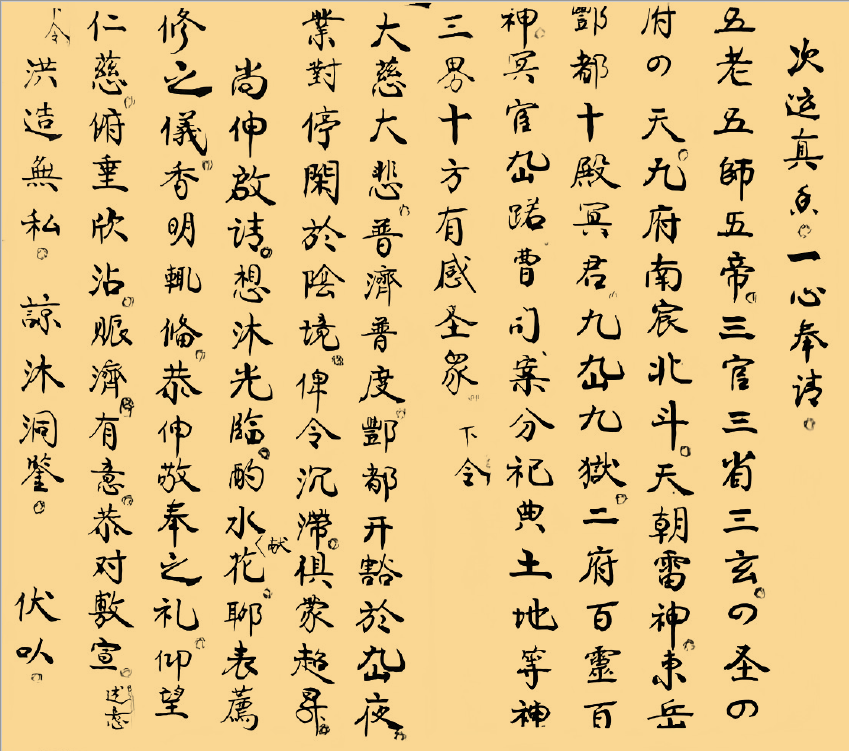 次运真香一心奉请
五老五師五帝三官三省三玄の圣の
府の天九府南宸北斗天朝雷神東岳
酆都十殿冥君九岳九獄二府百靈百
神冥官岳踣曹司案分祀典土地等神
三界十方有感圣眾 下令
大慈大悲普濟普度酆都开豁於岳夜
業對停閑於陰境俾令沉滯俱蒙超昇
尚伸啟请想沐光臨酌水献花聊表薦
修之儀香明輒俻恭伸敬奉之礼仰望
仁慈俯垂欣沾賑濟有意恭对敷宣
述意
今
洪造無私 諒沐洞鑒 伏以